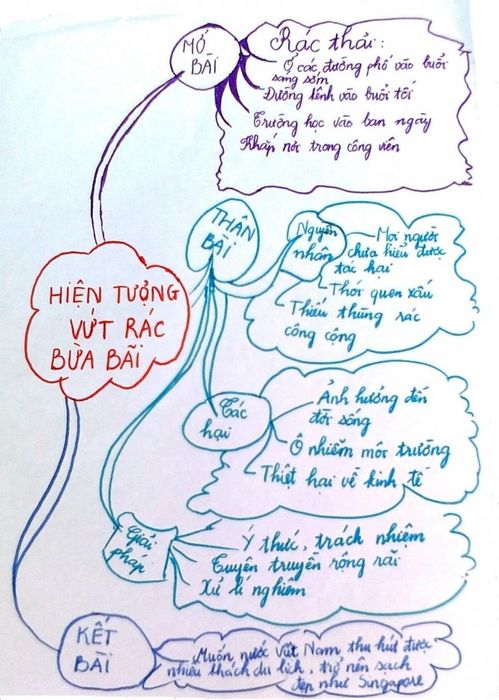 MỞ
BÀI
Rác thải:
Ở các đường phố vào buổi
sáng sớm
Đường lênh vào buổi tối
Trường học vào ban ngày
Khắp nơi trong công viên
THÂN
BÀI
Nguyên
nhân
Mọi người
chưa hiểu được
tác hại
Thói quen xấu
Thiếu thùng rác
công cộng
HIỆN TƯỢNG
VỨT RÁC
BỪA BÃI
Tác
hại
Ảnh hưởng đến
đời sống
Ô nhiễm môi trường
Thiệt hại về kinh tế
Giải
pháp
Ý thức, trách nhiệm
Tuyên truyền rộng rãi
Xử lí nghiêm
KẾT
BÀI
Muốn nước Việt Nam thu hút được
nhiều khách du lịch, trở nên sạch
đẹp như Singapore